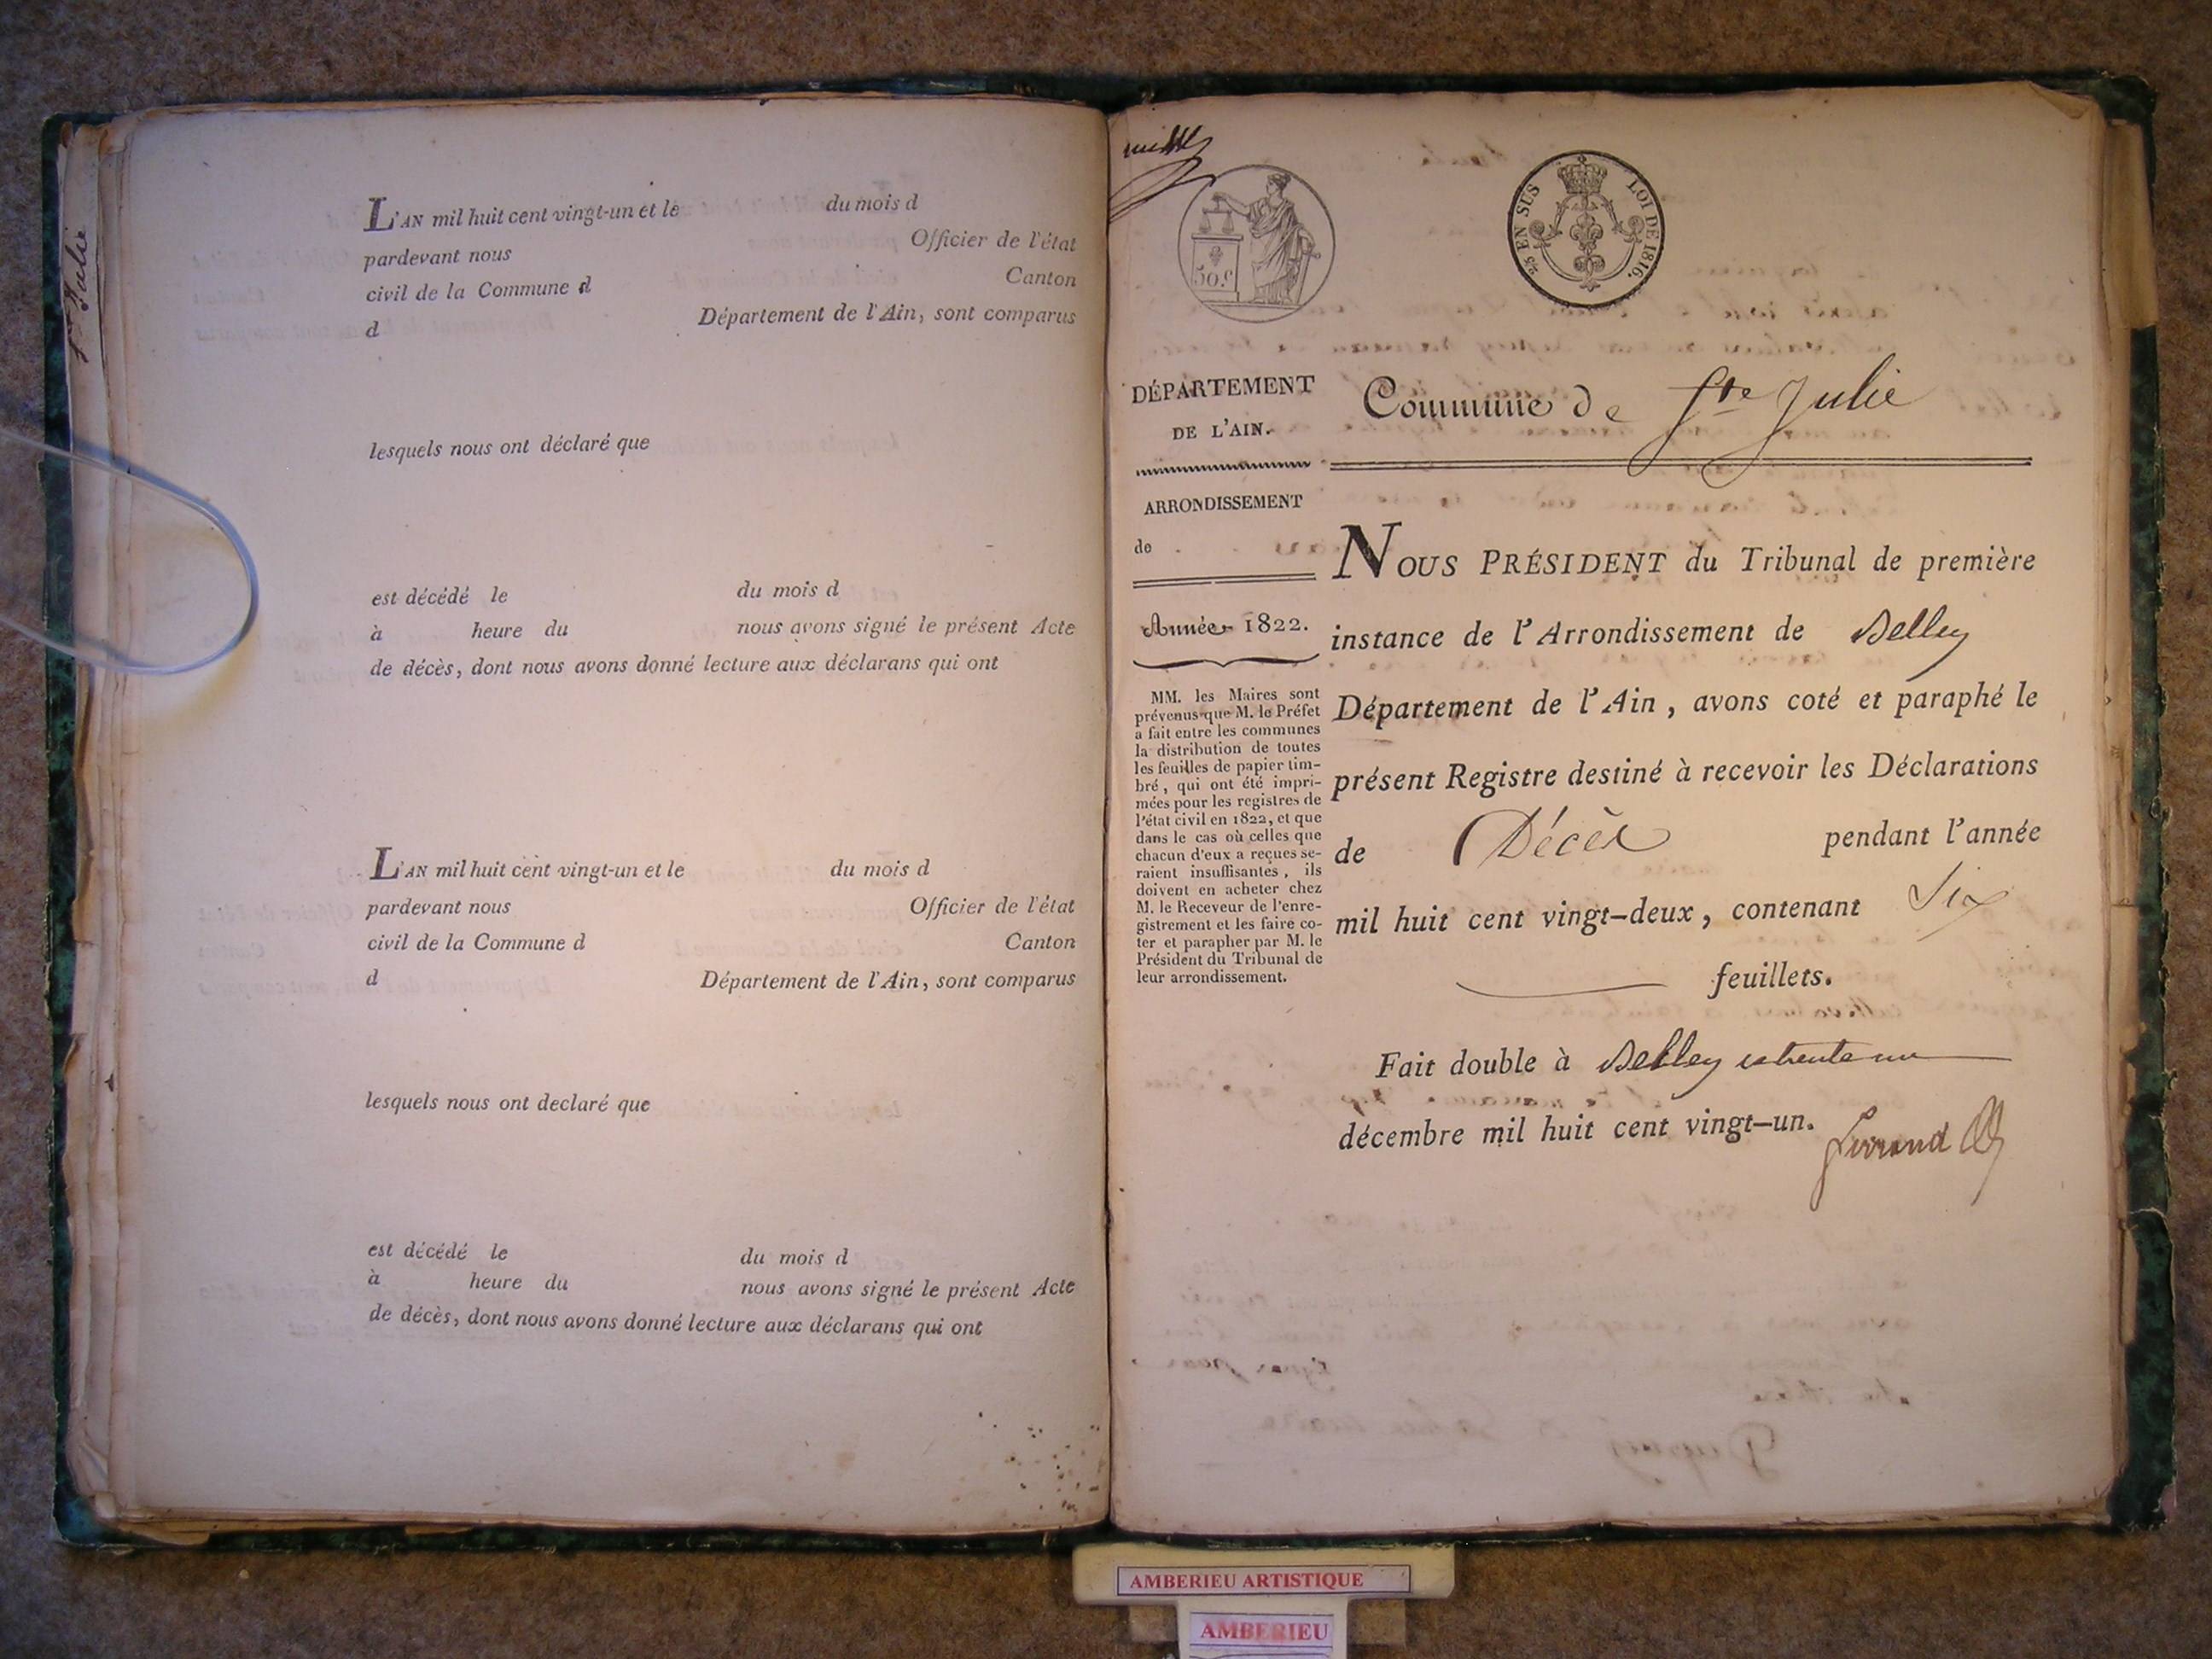 Ste Julie
L'AN mil huit cent vingt-un et le du mois d
pardevant nous Officier de l'état
civil de la Commune d Canton
d Département de l'Ain, sont comparus
lesquels nous ont déclaré que
est décédé le du mois d
à heure du nous avons signé le présent Acte
de décès, dont nous avons donné lecture aux déclarans qui ont
L'AN mil huit cent vingt-un et le du mois d
pardevant nous Officier de l'état
civil de la Commune d Canton
d Département de l'Ain, sont comparus
lesquels nous ont declaré que
est décédé le du mois d
à heure du nous avons signé le présent Acte
de décès, dont nous avons donné lecture aux déclarans qui ont
50 c
25 EN SUS LOI DE 1816.
DÉPARTEMENT
DE L'AIN.
ARRONDISSEMENT
de
Année 1822.
MM. les Maires sont
prévenus que M. le Préfet
a fait entre les communes
la distribution de toutes
les feuilles de papier tim-
bré, qui ont été impri-
mées pour les registres de
l'état civil en 1822, et que
dans le cas où celles que
chacun d'eux a reçues se-
raient insuffisantes, ils
doivent en acheter chez
M. le Receveur de l'enre-
gistrement et les faire co-
ter et parapher par M. le
Président du Tribunal de
leur arrondissement.
Commune de Ste Julie
NOUS PRÉSIDENT du Tribunal de première
instance de l'Arrondissement de Belley
Département de l'Ain, avons coté et paraphé le
présent Registre destiné à recevoir les Déclarations
de Décès pendant l'année
mil huit cent vingt-deux, contenant Six
feuillets.
Fait double à Belley le trente un
décembre mil huit cent vingt-un.
AMBERIEU ARTISTIQUE
AMBERIEU